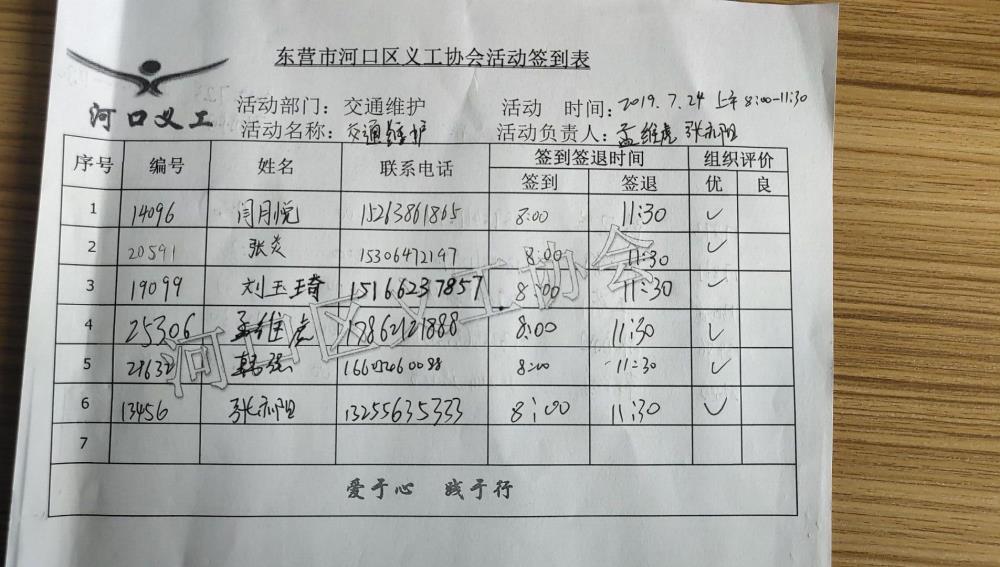 东营市河口区义工协会活动签到表
河口义工
活动部门：交通维护
活动 时间：2019.7.24 上午8:00-11:30
活动名称：交通维护
活动负责人：孟维虎 张亦阳
序号 编号 姓名 联系电话 签到签退时间 组织评价
签到 签退 优 良
1 14096 闫月悦 15263861865 8:00 11:30 ✓
2 20591 张炎 15306472197 8:00 11:30 ✓
3 19099 刘玉琦 15166237857 8:00 11:30 ✓
4 25306 孟维虎 17862121888 8:00 11:30 ✓
5 韩强 8:00 11:30 ✓
6 13456 张亦阳 13255635333 8:00 11:30 ✓
7
爱于心 践于行
河口区义工协会